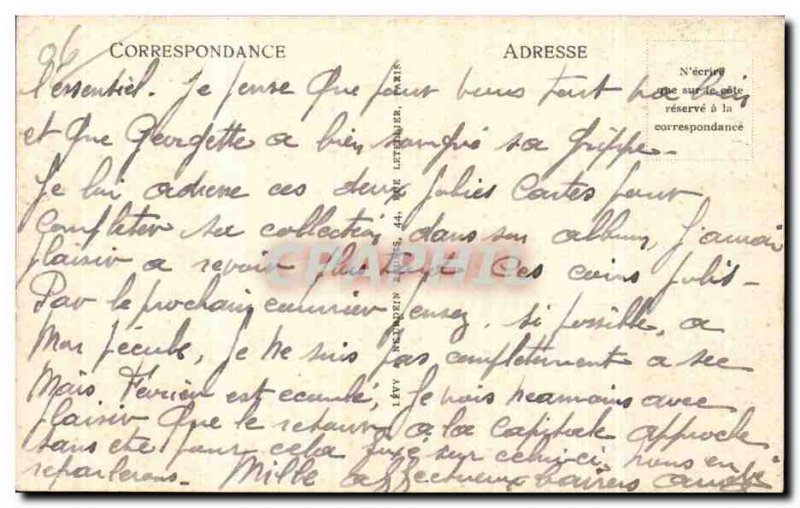 96
CORRESPONDANCE
ADRESSE
N'écrire
que sur le côté
réservé à la
correspondance
LÉVY & NEURDEIN RÉUNIS, 44, RUE LETELLIER, PARIS
CPAPHIL
l'essentiel. Je pense que pour vous tout va bien
et que Georgette a bien soigné sa grippe.
Je lui adresse ces deux jolies cartes pour
completer sa collection dans son album, j'aurai
plaisir a revoir plus tard ces coins jolis.
Par le prochain courrier pensez, si possible, a
mon pécule, je ne suis pas completement a sec
Mais Février est ecoulé, je vois neamoins avec
plaisir que le retour a la capitale approche
sans etre pour cela fixé sur celui-ci, nous en
reparlerons. Mille affectueux baisers